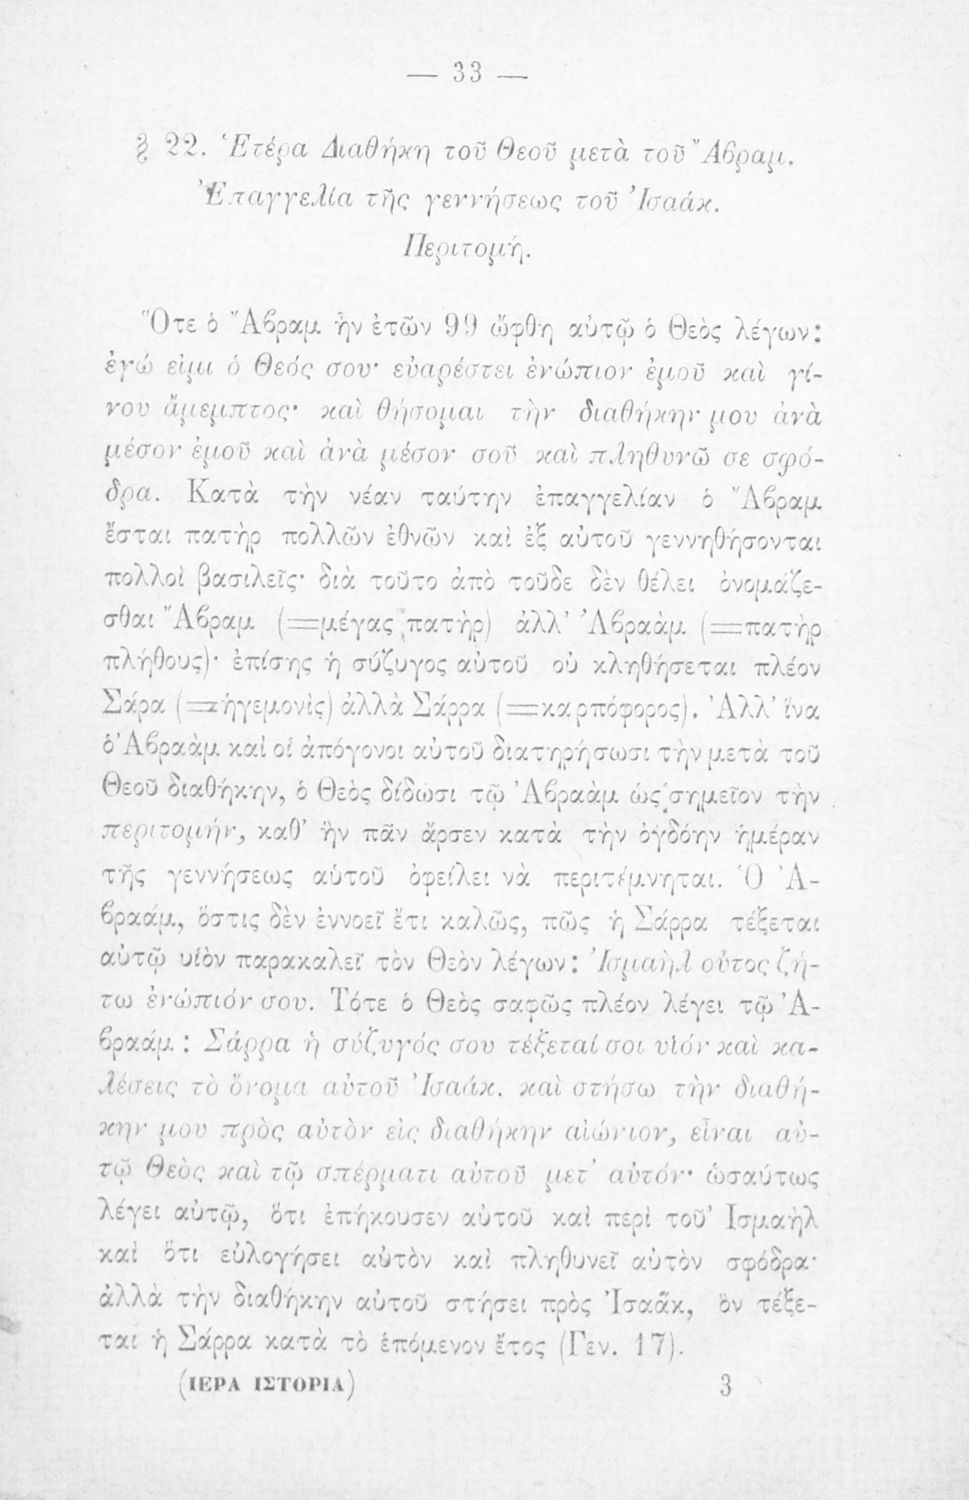 — 33 —
§ 22. Ἑτέρα Διαθήκη τοῦ Θεοῦ μετὰ τοῦ Ἄβραμ.
Ἐπαγγελία τῆς γεννήσεως τοῦ Ἰσαάκ.
Περιτομή.
Ὅτε ὁ Ἄβραμ ἦν ἐτῶν 99 ὤφθη αὐτῷ ὁ Θεὸς λέγων:
ἐγώ εἰμι ὁ Θεός σου· εὐαρέστει ἐνώπιον ἐμοῦ καὶ γί-
νου ἄμεμπτος· καὶ θήσομαι τὴν διαθήκην μου ἀνὰ
μέσον ἐμοῦ καὶ ἀνὰ μέσον σοῦ καὶ πληθυνῶ σε σφό-
δρα. Κατὰ τὴν νέαν ταύτην ἐπαγγελίαν ὁ Ἄβραμ
ἔσται πατὴρ πολλῶν ἐθνῶν καὶ ἐξ αὐτοῦ γεννηθήσονται
πολλοὶ βασιλεῖς· διὰ τοῦτο ἀπὸ τοῦδε δὲν θέλει ὀνομάζε-
σθαι Ἄβραμ (=μέγας πατὴρ) ἀλλ' Ἀβραὰμ (=πατὴρ
πλήθους)· ἐπίσης ἡ σύζυγος αὐτοῦ οὐ κληθήσεται πλέον
Σάρα (=ἡγεμονὶς) ἀλλὰ Σάρρα (=καρπόφορος). Ἀλλ' ἵνα
ὁ Ἀβραὰμ καὶ οἱ ἀπόγονοι αὐτοῦ διατηρήσωσι τὴν μετὰ τοῦ
Θεοῦ διαθήκην, ὁ Θεὸς δίδωσι τῷ Ἀβραὰμ ὡς σημεῖον τὴν
περιτομήν, καθ' ἣν πᾶν ἄρσεν κατὰ τὴν ὀγδόην ἡμέραν
τῆς γεννήσεως αὐτοῦ ὀφείλει νὰ περιτέμνηται. Ὁ Ἀ-
βραάμ, ὅστις δὲν ἐννοεῖ ἔτι καλῶς, πῶς ἡ Σάρρα τέξεται
αὐτῷ υἱὸν παρακαλεῖ τὸν Θεὸν λέγων: Ἰσμαὴλ οὗτος ζή-
τω ἐνώπιόν σου. Τότε ὁ Θεὸς σαφῶς πλέον λέγει τῷ Ἀ-
βραάμ: Σάρρα ἡ σύζυγός σου τέξεταί σοι υἱόν καὶ κα-
λέσεις τὸ ὄνομα αὐτοῦ Ἰσαάκ. καὶ στήσω τὴν διαθή-
κην μου πρὸς αὐτὸν εἰς διαθήκην αἰώνιον, εἶναι αὐ-
τῷ Θεὸς καὶ τῷ σπέρματι αὐτοῦ μετ' αὐτόν· ὡσαύτως
λέγει αὐτῷ, ὅτι ἐπήκουσεν αὐτοῦ καὶ περὶ τοῦ Ἰσμαὴλ
καὶ ὅτι εὐλογήσει αὐτὸν καὶ πληθυνεῖ αὐτὸν σφόδρα·
ἀλλὰ τὴν διαθήκην αὐτοῦ στήσει πρὸς Ἰσαᾶκ, ὃν τέξε-
ται ἡ Σάρρα κατὰ τὸ ἑπόμενον ἔτος (Γεν. 17).
(ΙΕΡΑ ΙΣΤΟΡΙΑ) 3